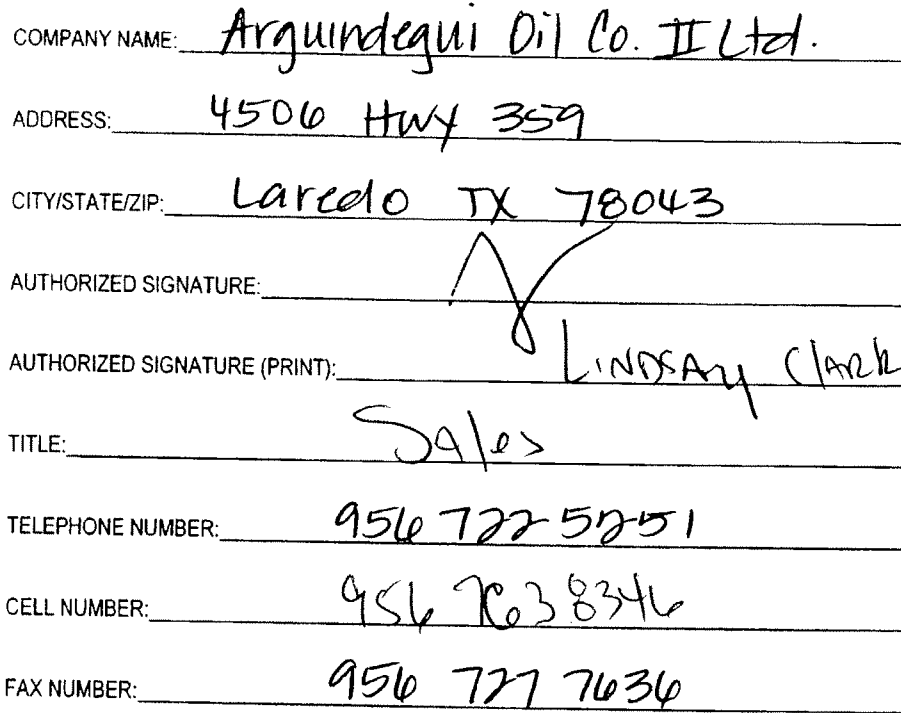 COMPANY NAME: Arguindegui Oil Co. II Ltd.
ADDRESS: 4506 HWY 359
CITY/STATE/ZIP: Laredo TX 78043
AUTHORIZED SIGNATURE:
AUTHORIZED SIGNATURE (PRINT): LINDSAY CLARK
TITLE: Sales
TELEPHONE NUMBER: 956 722 5251
CELL NUMBER: 956 763 8346
FAX NUMBER: 956 727 7636